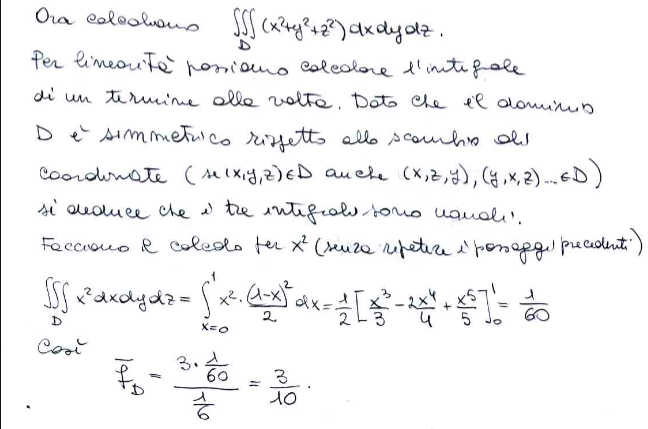 Ora calcoliamo ∭_D (x²+y²+z²) dxdydz.
Per linearità possiamo calcolare l'integrale
di un termine alla volta. Dato che il dominio
D è simmetrico rispetto allo scambio di
coordinate (se (x,y,z)∈D anche (x,z,y), (y,x,z)...∈D)
si deduce che i tre integrali sono uguali.
Facciamo il calcolo per x² (senza ripetere i passaggi precedenti)
∭_D x² dxdydz = ∫_{x=0}^1 x²·(1-x)²/2 dx = 1/2 [x³/3 - 2x⁴/4 + x⁵/5]_0^1 = 1/60
Così
f̄_D = (3·1/60)/(1/6) = 3/10.